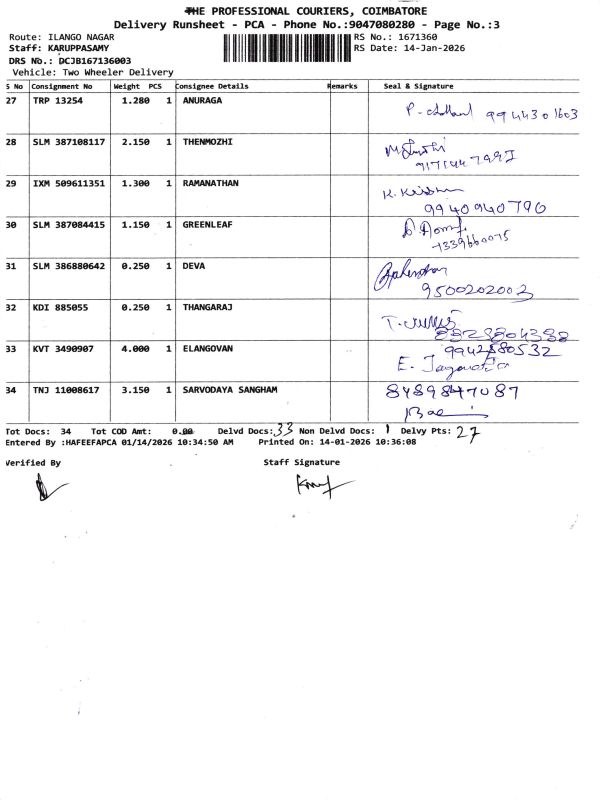 THE PROFESSIONAL COURIERS, COIMBATORE
Delivery Runsheet - PCA - Phone No.:9047080280 - Page No.:3
Route: ILANGO NAGAR RS No.: 1671360
Staff: KARUPPASAMY RS Date: 14-Jan-2026
DRS No.: DCJB167136003
Vehicle: Two Wheeler Delivery
S No Consignment No Weight PCS Consignee Details Remarks Seal & Signature
27 TRP 13254 1.280 1 ANURAGA
9944301603
28 SLM 387108117 2.150 1 THENMOZHI
29 IXM 509611351 1.300 1 RAMANATHAN
K. Krishna
9940940790
30 SLM 387084415 1.150 1 GREENLEAF
7339660075
31 SLM 386880642 0.250 1 DEVA
9500202003
32 KDI 885055 0.250 1 THANGARAJ
33 KVT 3490907 4.000 1 ELANGOVAN
9942880532
34 TNJ 11008617 3.150 1 SARVODAYA SANGHAM
8489847087
Tot Docs: 34 Tot COD Amt: 0.00 Delvd Docs: 33 Non Delvd Docs: 1 Delvy Pts: 27
Entered By :HAFEEFAPCA 01/14/2026 10:34:50 AM Printed On: 14-01-2026 10:36:08
Verified By Staff Signature